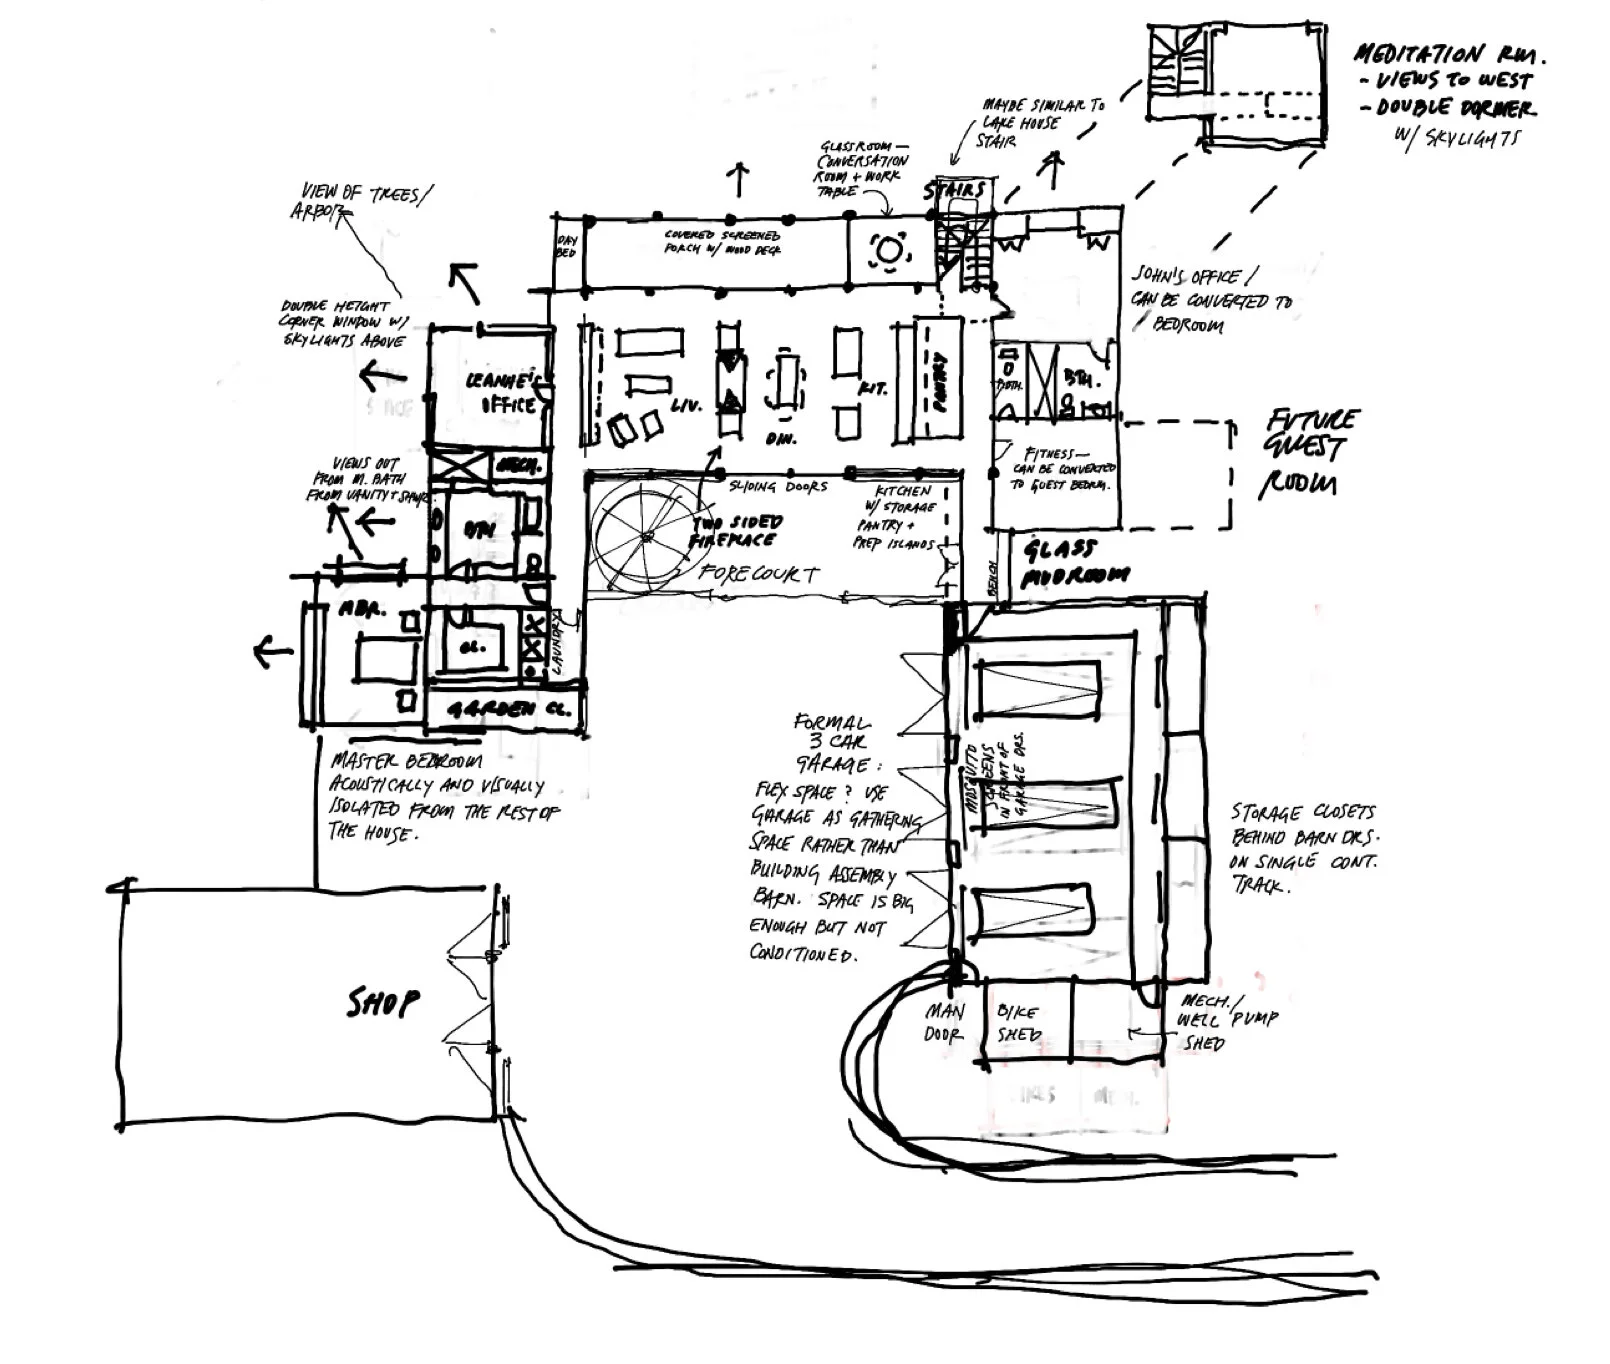 MEDITATION RM.
- VIEWS TO WEST
- DOUBLE DORMER
W/ SKYLIGHTS
MAYBE SIMILAR TO
LAKE HOUSE
STAIR
GLASS ROOM —
CONVERSATION
ROOM + WORK
TABLE
STAIRS
VIEW OF TREES/
DAY
BED
COVERED SCREENED
PORCH W/ WOOD DECK
JOHN'S OFFICE /
CAN BE CONVERTED TO
BEDROOM
DOUBLE HEIGHT
CORNER WINDOW W/
SKYLIGHTS ABOVE
LEANNE'S
OFFICE
LIV.
DIN.
KIT.
PANTRY
BTH.
BTH.
FUTURE
GUEST
ROOM
FITNESS —
CAN BE CONVERTED
TO GUEST BEDRM.
VIEWS OUT
FROM M. BATH
FROM VANITY +
MECH.
BTH
SLIDING DOORS
KITCHEN
W/ STORAGE
PANTRY +
PREP ISLANDS
TWO SIDED
FIREPLACE
FORECOURT
GLASS
MUDROOM
BENCH
MBR.
CL.
LAUNDRY
GARDEN CL.
MASTER BEDROOM
ACOUSTICALLY AND VISUALLY
ISOLATED FROM THE REST OF
THE HOUSE.
FORMAL
3 CAR
GARAGE:
FLEX SPACE? USE
GARAGE AS GATHERING
SPACE RATHER THAN
BUILDING ASSEMBLY
BARN. SPACE IS BIG
ENOUGH BUT NOT
CONDITIONED.
MOSQUITO
SCREENS
IN FRONT OF
GARAGE DRS.
STORAGE CLOSETS
BEHIND BARN DRS.
ON SINGLE CONT.
TRACK.
SHOP
MAN
DOOR
BIKE
SHED
MECH./
WELL PUMP
SHED